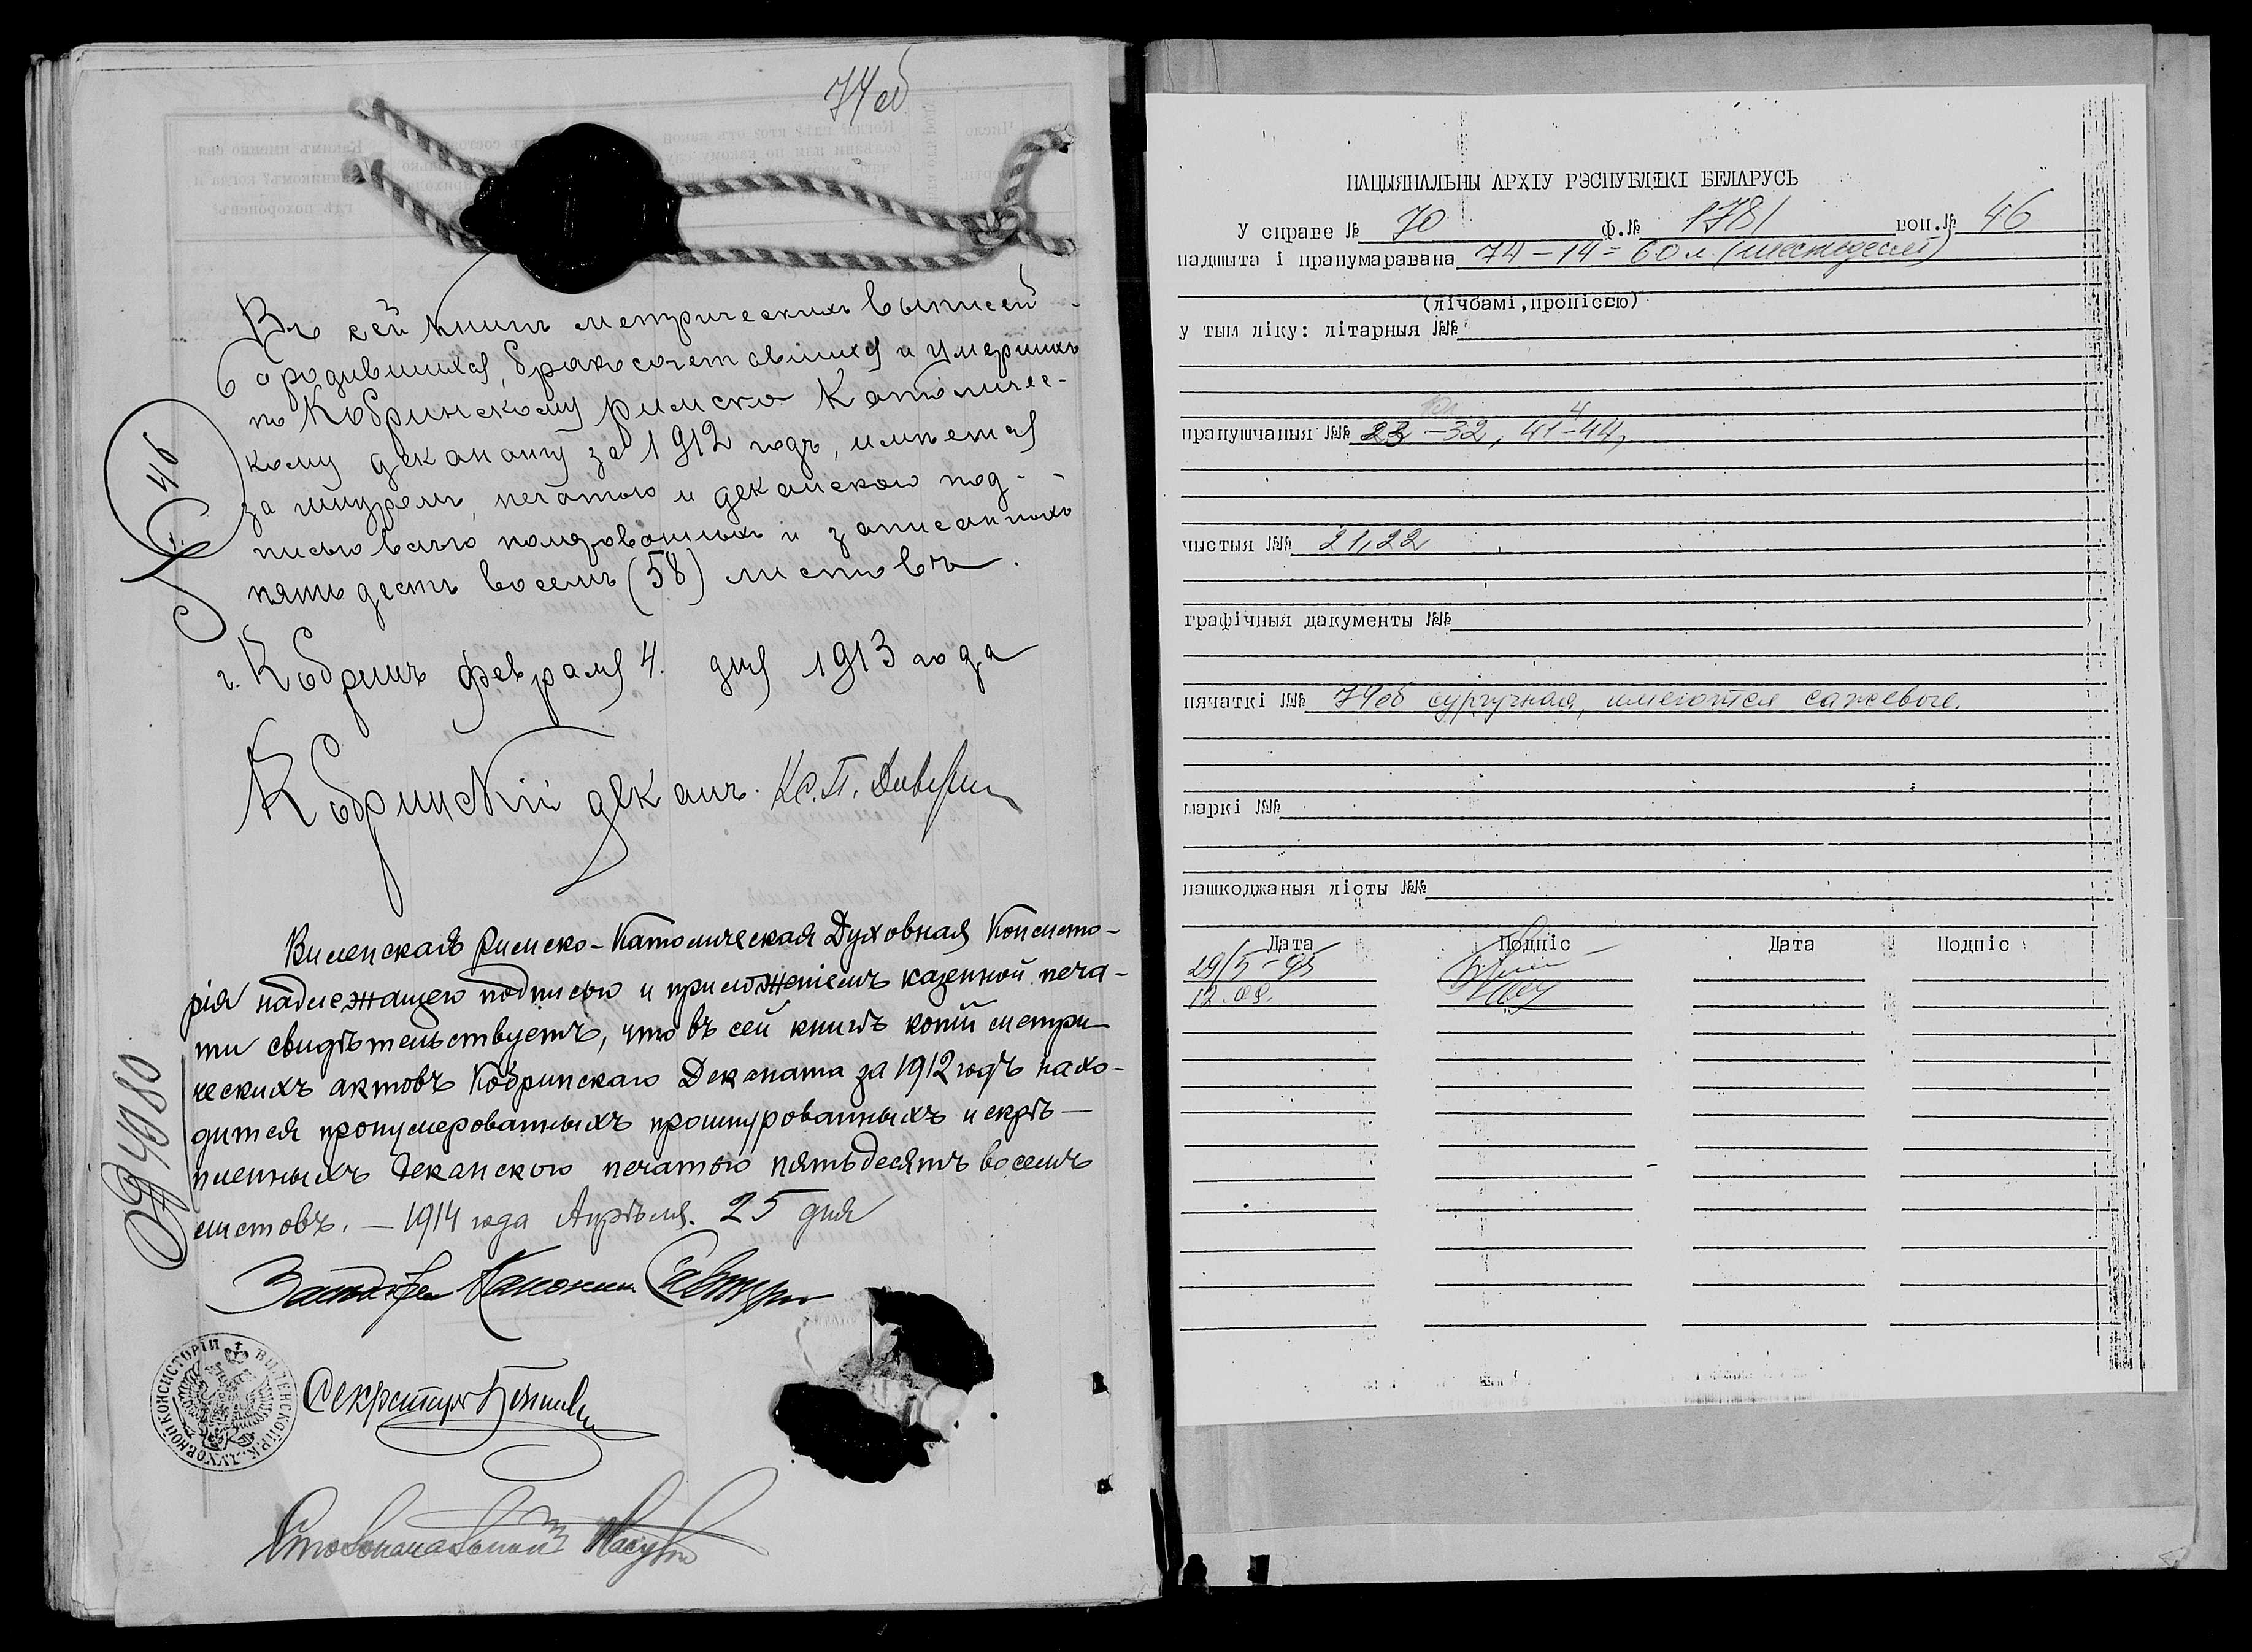 74 об
Въ сей книгѣ метрическихъ выписей
о родившихся, бракосочетавшихся и умершихъ
по Кобринскому римско Католичес-
кому деканату за 1912 годъ, имѣется
за шнуромъ, печатью и деканскою под-
писью всего и записанныхъ
пятьдесятъ восемъ (58) листовъ.
№ 46
г. Кобринъ февраля 4. дня 1913 года
Кобринскій деканъ. Кс. П.
Виленская Римско-Католическая Духовная Консисто-
рія надлежащею подписью и приложеніемъ казенной печа-
ти свидѣтельствуетъ, что въ сей книгѣ копій метри-
ческихъ актовъ Кобринскаго Деканата за 1912 годъ нахо-
дится пронумерованныхъ прошнурованныхъ и скрѣ-
пленныхъ деканскою печатью пятьдесятъ восемь
листовъ. — 1914 года Апрѣля 25 дня
№ 4980
Секретарь
Столоначальникъ
ВИЛЕНСКОЙ Р.К. ДУХОВНОЙ КОНСИСТОРІИ
НАЦЫЯНАЛЬНЫ АРХІУ РЭСПУБЛІКІ БЕЛАРУСЬ
У справе № 70 ф.№ 1781 воп.№ 46
падшыта і пранумаравана 74-14=60 л. (шестьдесят)
(лічбамі, пропіссю)
у тым ліку: літарныя №№
прапушчаныя №№ 23-32, 41-44,
чыстыя №№ 21,22
графічныя дакументы №№
пячаткі №№ 74об сургучная, имеются сажевые.
маркі №№
пашкоджаныя лісты №№
Дата Подпіс Дата Подпіс
29/5-95